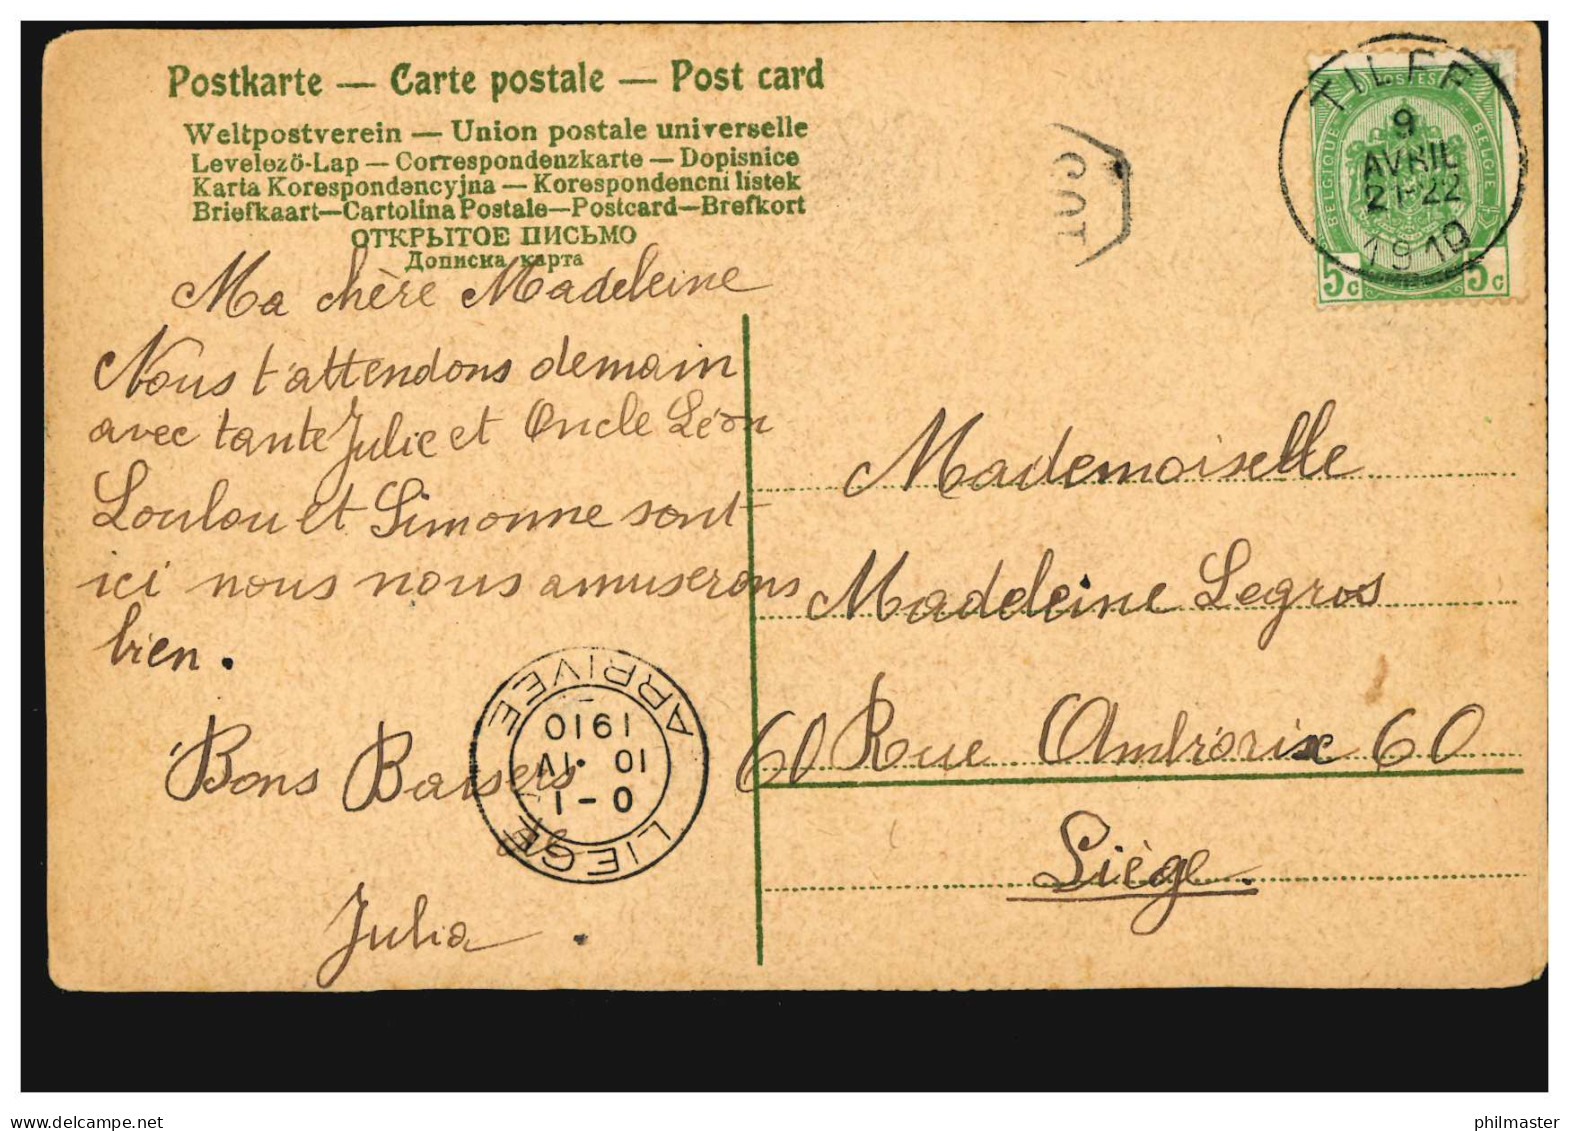 Postkarte — Carte postale — Post card
Weltpostverein — Union postale universelle
Levelező-Lap — Correspondenzkarte — Dopisnice
Karta Korespondencyjna — Korespondencni listek
Briefkaart—Cartolina Postale—Postcard—Brefkort
ОТКРЫТОЕ ПИСЬМО
Дописна карта
Ma chère Madeleine
Nous t'attendons demain
avec tante Julie et Oncle Léon
Loulou et Simonne sont
ici nous nous amuserons
bien.
Bons Baisers
Julia
TILFF
9
AVRIL
21-22
1910
POSTES
BELGIQUE
BELGIË
5c
5c
Mademoiselle
Madeleine Legros
60 Rue Ambiorix 60
Liège.
LIEGE ARRIVEE
0-1
10 IV
1910
delcampe.net
philmaster